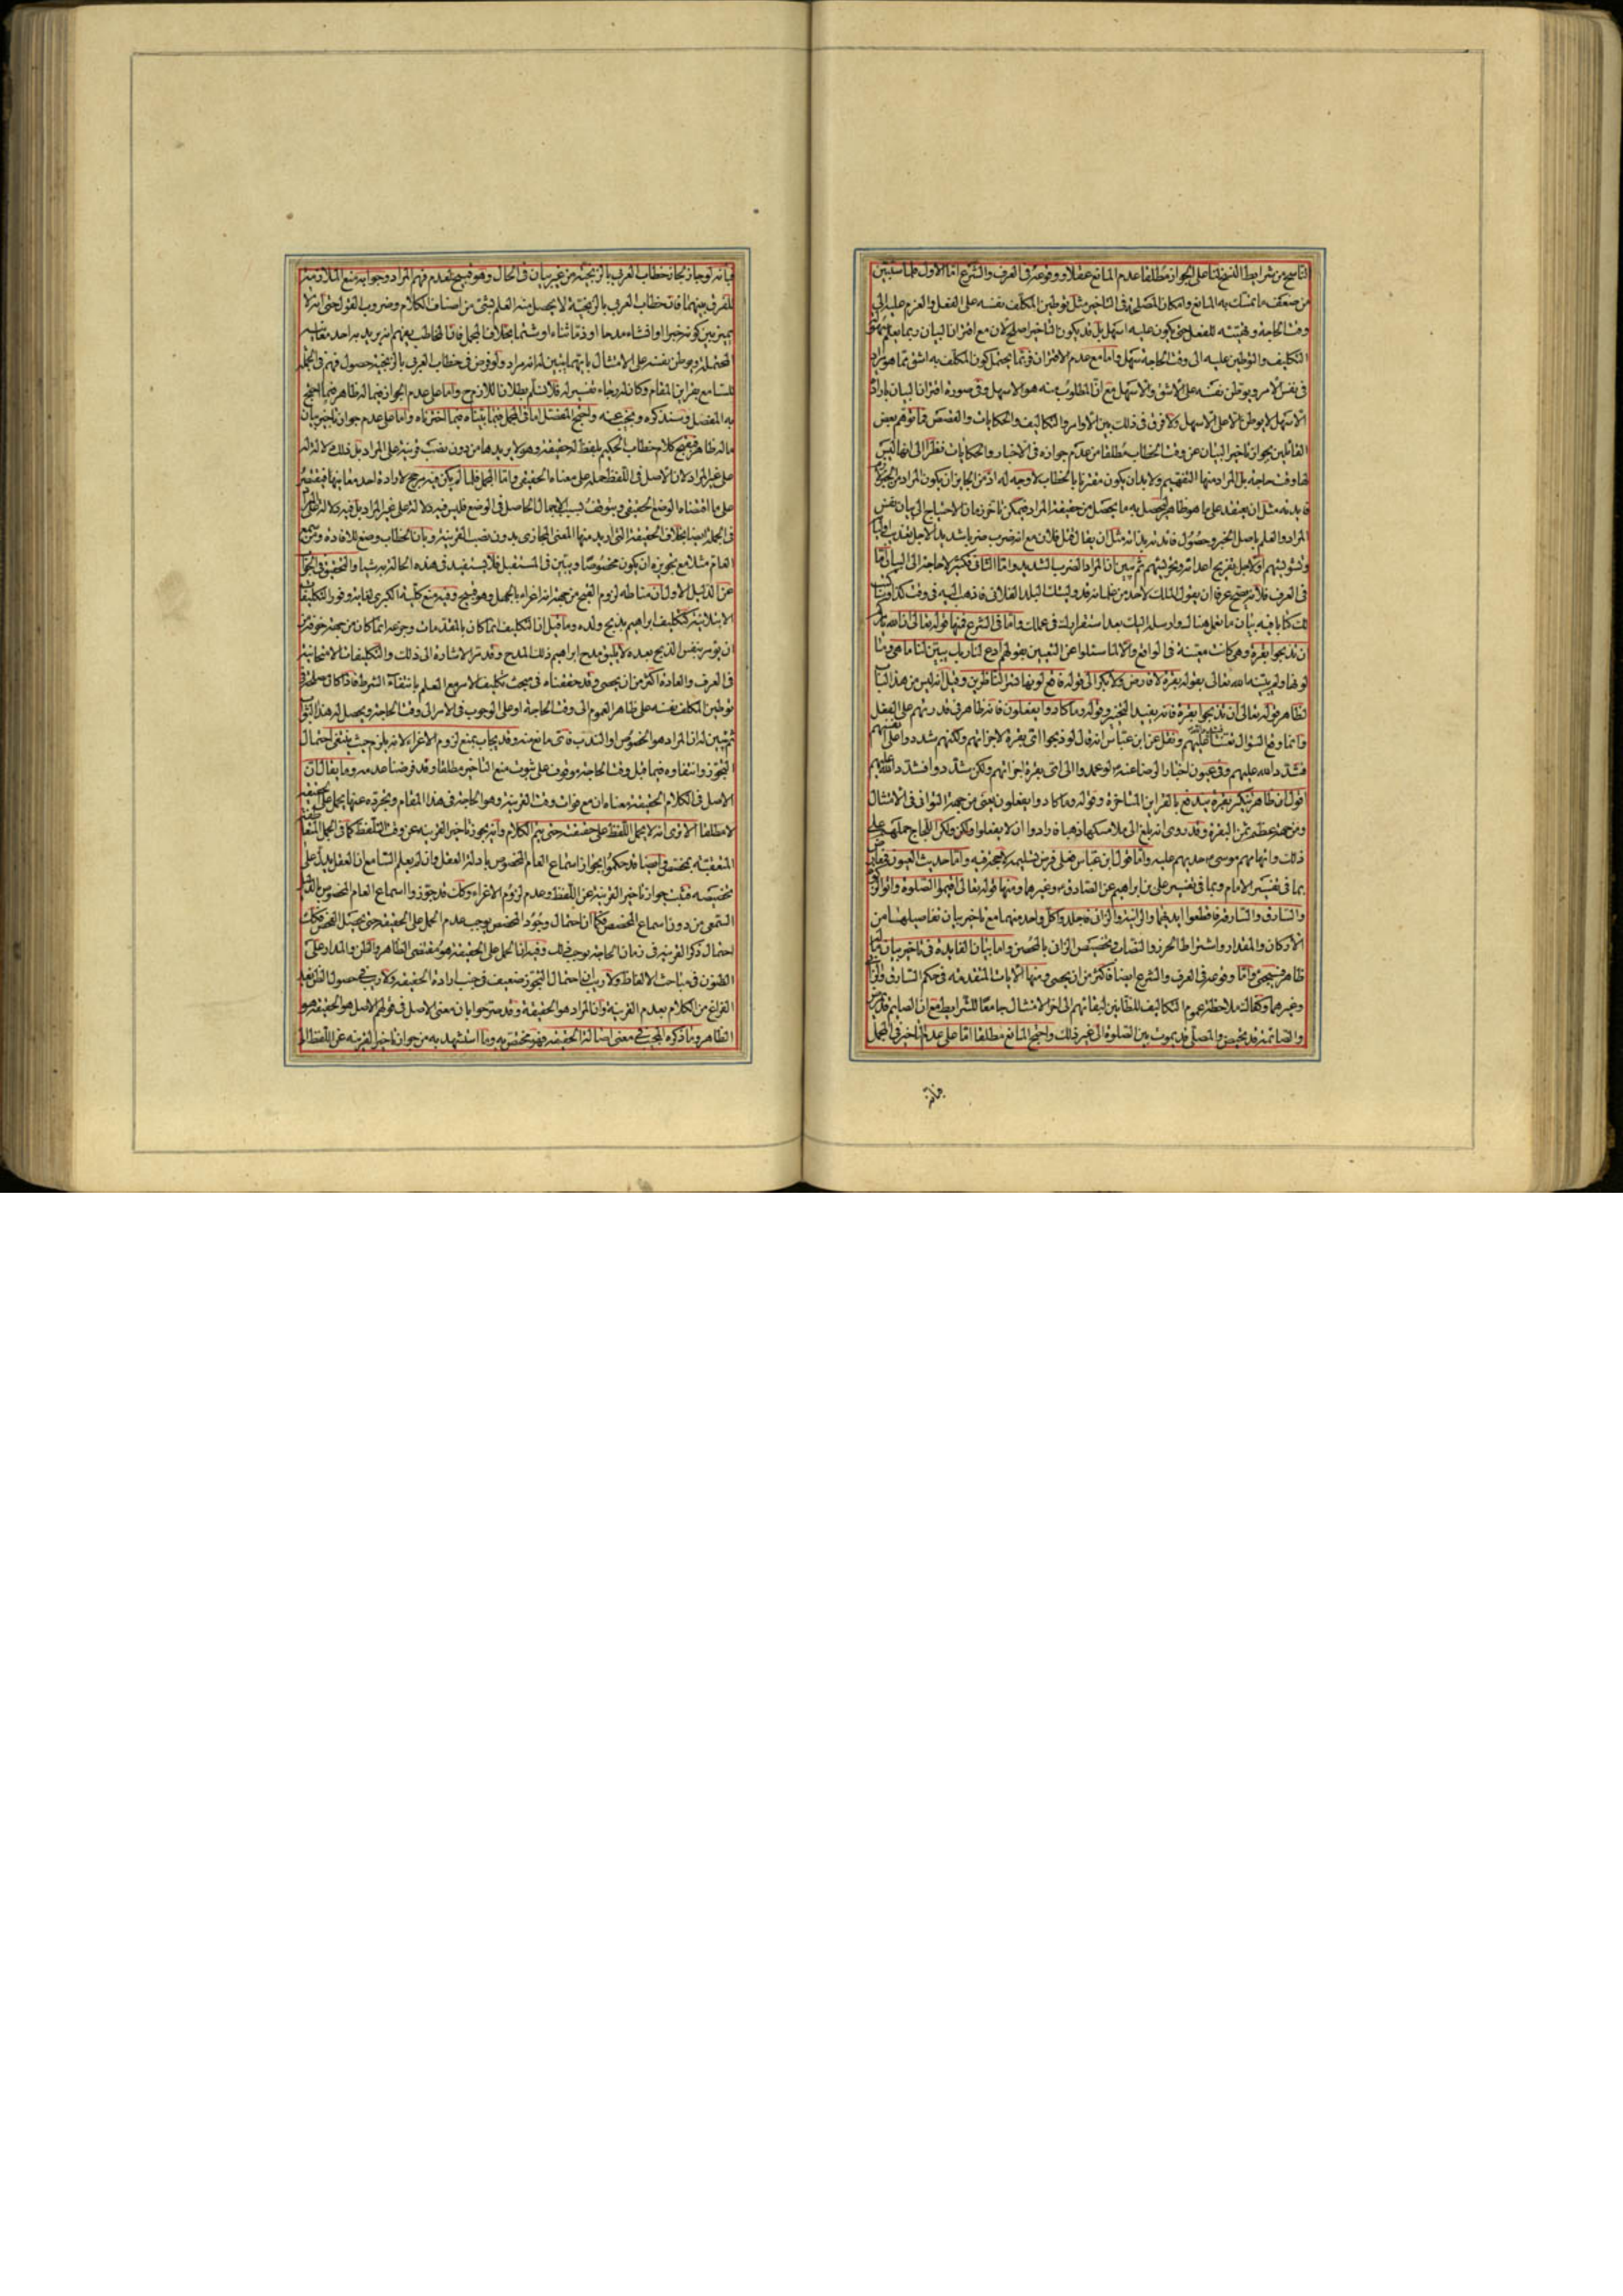 الناسخ من شرايط النسخ لنا على الجواز مطلقا عدم المانع عقلا ووقوعه فى العرف والشرع اما الاول فلما سنبين
من ضعف ما تمسك به المانع وامكان المصلحة فى التاخير مثل توطين المكلف نفسه على الفعل والعزم عليه الى
وقت الحاجة وتهيئه للفعل حتى يكون عليه اسهل بل قد يكون التاخير اصلح لان مع اقتران البيان ربما
التكليف والتوطين عليه الى وقت الحاجة سهل واما مع عدم الاقتران فربما يحتمل كون المكلف به اشق مما هو مراد
فى نفس الامر ويوطن نفسه على الاشق والاسهل مع ان المطلوب منه هو الاسهل وفى صورة اقتران البيان بارادة
الاسهل لا يوطن الا على الاسهل ولا فرق فى ذلك بين الاوامر والتكاليف والحكايات والقصص فما توهم بعض
القائلين بجواز تاخير البيان عن وقت الخطاب مطلقا من عدم جوازه فى الاخبار والحكايات نظرا الى انها ليس
لها وقت حاجة بل المراد منها التفهيم ولا بد ان يكون مقترنا بالخطاب لا وجه له اذ من الجايز ان يكون المراد من الخبر
فايدته مثل ان يعتقد على ما هو ظاهر ليحصل به ما يحصل من حقيقة المراد فيمكن تاخر زمان الاحتياج الى بيان نفس
المراد والعلم باصل الخبر وحصول فائدته بذاته مثل ان يقال قتل فلان مع انه ضرب ضربا شديدا لاجل تعذيب
وتشويشهم او لاجل تفريح اعدائه وتخويشهم ثم تبين ان المراد الضرب الشديد واما الثانى فكثير لا حاجة الى البيان اما
فى العرف فلانه يصح عرفا ان يقول الملك لاحد من غلمانه قد وليتك البلد الفلانى فاذهب اليه فى وقت كذا
لك كتابا فيه بيان ما تعمل هناك وارسله اليك بعد استقرارك فى عملك واما فى الشرع فمنها قوله تعالى ان الله يامركم
ان تذبحوا بقرة وهى كانت معينة فى الواقع والا لما سئلوا عن التعيين بقولهم ادع لنا ربك يبين لنا ما هى وما
لونها ولم يبينه الله تعالى بقوله بقرة لا فارض ولا بكر الى قوله فاقع لونها تسر الناظرين وقيل انه ليس من هذا الباب
لظاهر قوله تعالى ان تذبحوا بقرة فانه يفيد التخيير وقوله وما كادوا يفعلون فانه ظاهر فى قدرتهم على الفعل
وانما وقع السؤال تعنتا ونقل عن ابن عباس انه قال لو ذبحوا اى بقرة لاجزاتهم ولكنهم شددوا على انفسهم
فشدد الله عليهم وفى عيون اخبار الرضا عنه لو عمدوا الى اى بقرة اجزاتهم ولكن شددوا فشدد الله عليهم
اقول ان ظاهر تنكير بقرة يندفع بالقراين المتاخرة وقوله وما كادوا يفعلون يعنى من جهة التوانى فى الامتثال
ومن جهة عظم ثمن البقرة وقد روى انه بلغ الى ملا مسكها ذهبا فارادوا ان لا يفعلوا ولكن اللجاج حملهم على
ذلك واتهامهم موسى حداهم عليه واما قول ابن عباس فعلى فرض تسليمه لا حجة فيه واما حديث العيون فمعارض
بما فى تفسير الامام وبما فى تفسير على بن ابراهيم عن الصادق وغيرها ومنها قوله تعالى اقيموا الصلوة واتوا الزكوة
والسارق والسارقة فاقطعوا ايديهما والزانية والزانى فاجلدوا كل واحد منهما مع تاخير بيان تفاصيلها من
الاركان والمقدار واشتراط الحرز والنصاب وتخصيص الزانى بالمحصن واما بيان الفايدة فى تاخير بيان
ظاهر فسيجىء واما وقوعه فى العرف والشرع ايضا فاكثر من ان يحصى ومنها الايات المتقدمة فى حكم السارق والزانى
وغيرهما وكفاك ملاحظة عموم التكاليف للظانين لبقائهم الى اخر الامتثال جامعا للشرايط مع ان الصايم قد يمرض
والصائمة قد تحيض والمصلى قد يموت بين الصلوة الى غير ذلك واحتج المانع مطلقا اما على عدم التاخير فى المجمل
فبانه
فبانه لو جاز لجاز خطاب العربى بالزنجية من غير بيان فى الحال وهو قبيح لعدم فهم المراد وجوابه منع الملازمة
للفرق بينهما فان خطاب العربى بالزنجية لا يحصل منه العلم بشئ من اصناف الكلام وضروب القول حتى انه لا
يميز بين كونه خبرا او انشاء مدحا او ذما ثناء او شتما بخلاف المجمل فان المخاطب يفهم انه يريد به احد معانيه
المحتملة ويوطن نفسه على الامتثال بايهما يتبين له انه مراد ولو فرض فى خطاب العربى بالزنجية حصول فهم فى الجملة
للسامع بقراين المقام وكان له رجاء تفسير له فلا نسلم بطلان اللازم ح واما على عدم الجواز فيما له ظاهر فبما احتج
به المفصل وسنذكره ونجيب عنه واحتج المفصل اما فى المجمل فبما بيناه فيما اخترناه واما على عدم جواز تاخير بيان
ما له ظاهر فبقبح كلام خطاب الحكيم بلفظ له حقيقة وهو لا يريدها من دون نصب قرينة على المراد بل ذلك دلالة له
على غير المراد لان الاصل فى اللفظ حمله على معناه الحقيقى واما المجمل فلما لم يكن فيه مرجح لارادة احد معانيها فيقتصر
على ما اقتضاه الوضع الحقيقى ويتوقف بسبب الاجمال الحاصل فى الوضع فليس فيه دلالة على غير المراد بل فيه دلالة على المراد
فى الجملة ايضا بخلاف الحقيقة التى اريد منها المعنى المجازى بدون نصب القرينة وبان الخطاب وضع للافادة ومن سمع
العام مثلا مع تجويزه ان يكون مخصوصا ويتبين فى المستقبل فلا يستفيد فى هذه الحالة به شيئا والتحقيق فى الجواب
عن الدليل الاول ان مناطه لزوم القبح من جهة انه اغراء بالجهل وهو قبيح وفيه منع كلية الكبرى لغاية وفور التكليفات
الابتلائية كتكليف ابراهيم بذبح ولده وما قيل ان التكليف انما كان بالمقدمات وجزعه انما كان من جهة خوفه من
ان يؤمر بنفس الذبح بعده لا يليق بمدح ابراهيم ذلك المدح وقد مر الاشارة الى ذلك والتكليفات الامتحانية
فى العرف والعادة اكثر من ان يحصى وقد حققناه فى مبحث تكليف الامر مع العلم بانتفاء الشرط فاذا كان مصلحة فى
توطين المكلف نفسه على ظاهر العموم الى وقت الحاجة او على الوجوب فى الامر الى وقت الحاجة ويحصل له هذا الثواب
ثم تبين له ان المراد هو الخصوص او الندب فاى مانع منه وقد يجاب بمنع لزوم الاغراء لانه يلزم حيث ينتفى احتمال
التجوز وانتفاؤه فيما قبل وقت الحاجة موقوف على ثبوت منع التاخير مطلقا وقد فرضنا عدمه وما يقال ان
الاصل فى الكلام الحقيقة معناه ان مع فوات وقت القرينة وهو الحاجة فى هذا المقام وتجرده عنها يحمل على الحقيقة
لا مطلقا الا ترى انه لا يحمل اللفظ على حقيقته حتى يتم الكلام وانه يجوز تاخير القرينة عن وقت التلفظ كما فى الجمل المتعاطفة
المتعقبة بمخصص وايضا قد حكموا بجواز اسماع العام المخصوص بادلة العقل وان لم يعلم السامع ان العقل يدل على
تخصيصه فثبت جواز تاخير القرينة عن اللفظ وعدم لزوم الاغراء وكذا قد جوزوا اسماع العام المخصوص بالدليل
السمعى من دون اسماع المخصص فكما ان احتمال وجود المخصص يوجب عدم الحمل على الحقيقة حتى يحصل الفحص فكذلك
احتمال ذكر القرينة فى زمان الحاجة يوجب ذلك وفيه ان الحمل على الحقيقة هو مقتضى الظاهر والظن والمدار على
الظنون فى مباحث الالفاظ ولا ريب ان احتمال التجوز ضعيف فى جنب ارادة الحقيقة ولا ريب فى حصول الظن بعد
الفراغ من الكلام بعدم القرينة وان المراد هو الحقيقة وقد صرحوا بان معنى الاصل فى قولهم الاصل هو الحقيقة هو
الظاهر وما ذكره المجيب فى معنى اصالة الحقيقة فهو مختص به وما استشهد به من جواز تاخير القرينة عن اللفظ